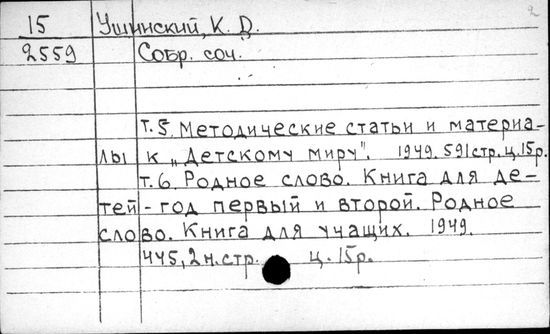 2
15 Ушинский, К. Д.
2559 Собр. соч.
т. 5. Методические статьи и материа-
лы к „Детскому миру". 1949. 591 стр. ц. 15р.
т. 6. Родное слово. Книга для де-
тей - год первый и второй. Родное
слово. Книга для учащих. 1949.
445, 2 н. стр. ц. 15р.